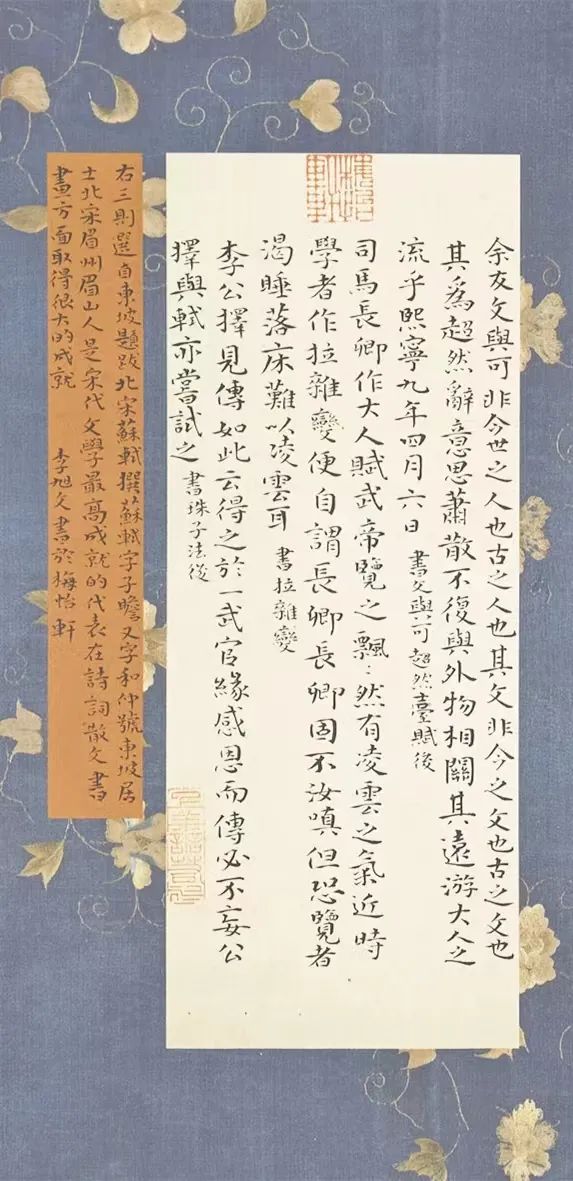 余友文與可非今世之人也古之人也其文非今之文也古之文也
其爲超然辭意思蕭散不復與外物相關其遠游大人之
流乎熙寧九年四月六日 書文與可超然臺賦後
司馬長卿作大人賦武帝覽之飄:然有凌雲之氣近時
學者作拉雜變便自謂長卿長卿固不汝嗔但恐覽者
渴睡落床難以凌雲耳 書拉雜變
李公擇見傳如此云得之於一武官緣感恩而傳必不妄公
擇與軾亦嘗試之 書珠子法後
右三則選自東坡題跋北宋蘇軾撰蘇軾字子瞻又字和仲號東坡居
士北宋眉州眉山人是宋代文學最高成就的代表在詩詞散文書
畫方面取得很大的成就 李旭文書於梅怡軒